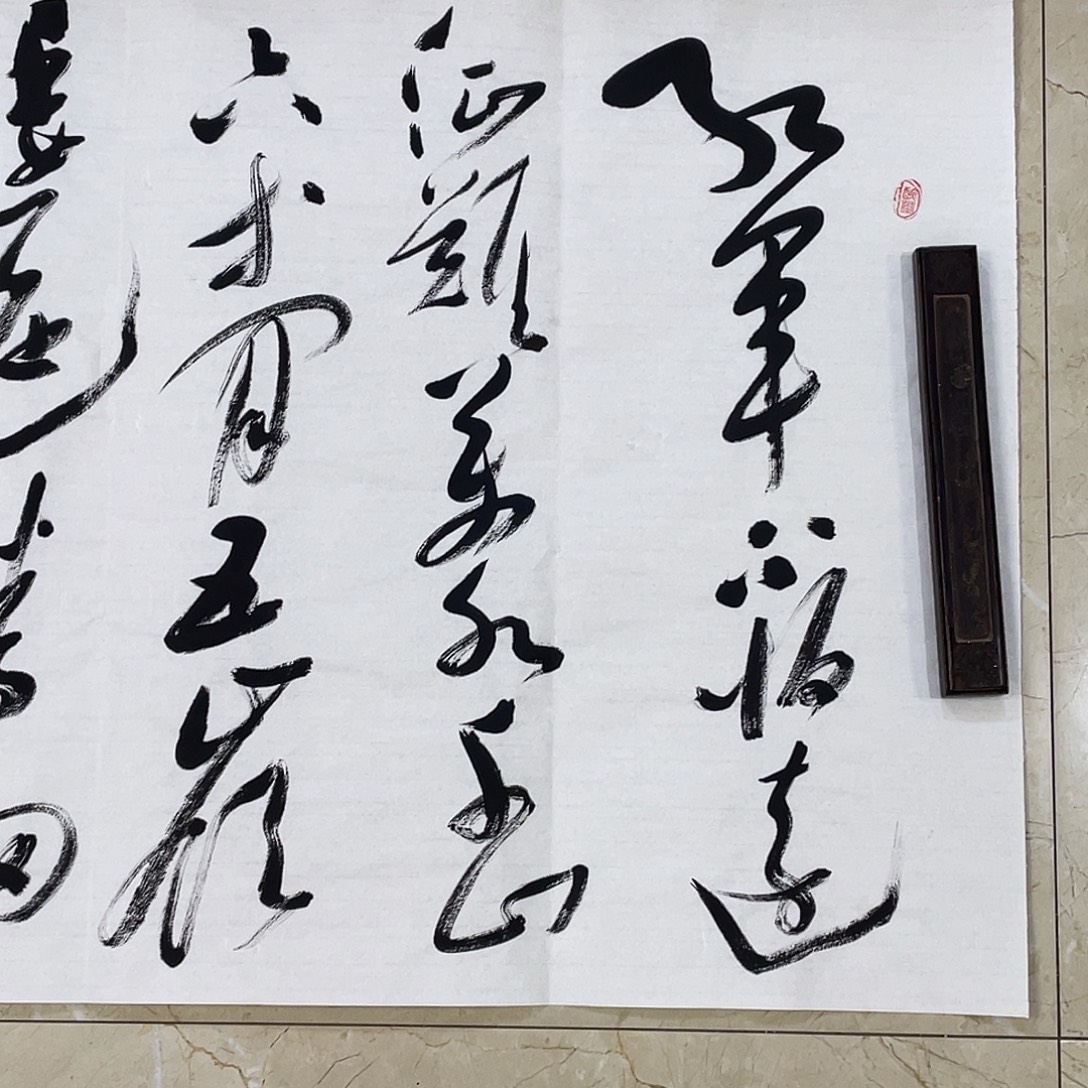 紅軍不怕遠
征難萬水千山
只等閒五嶺